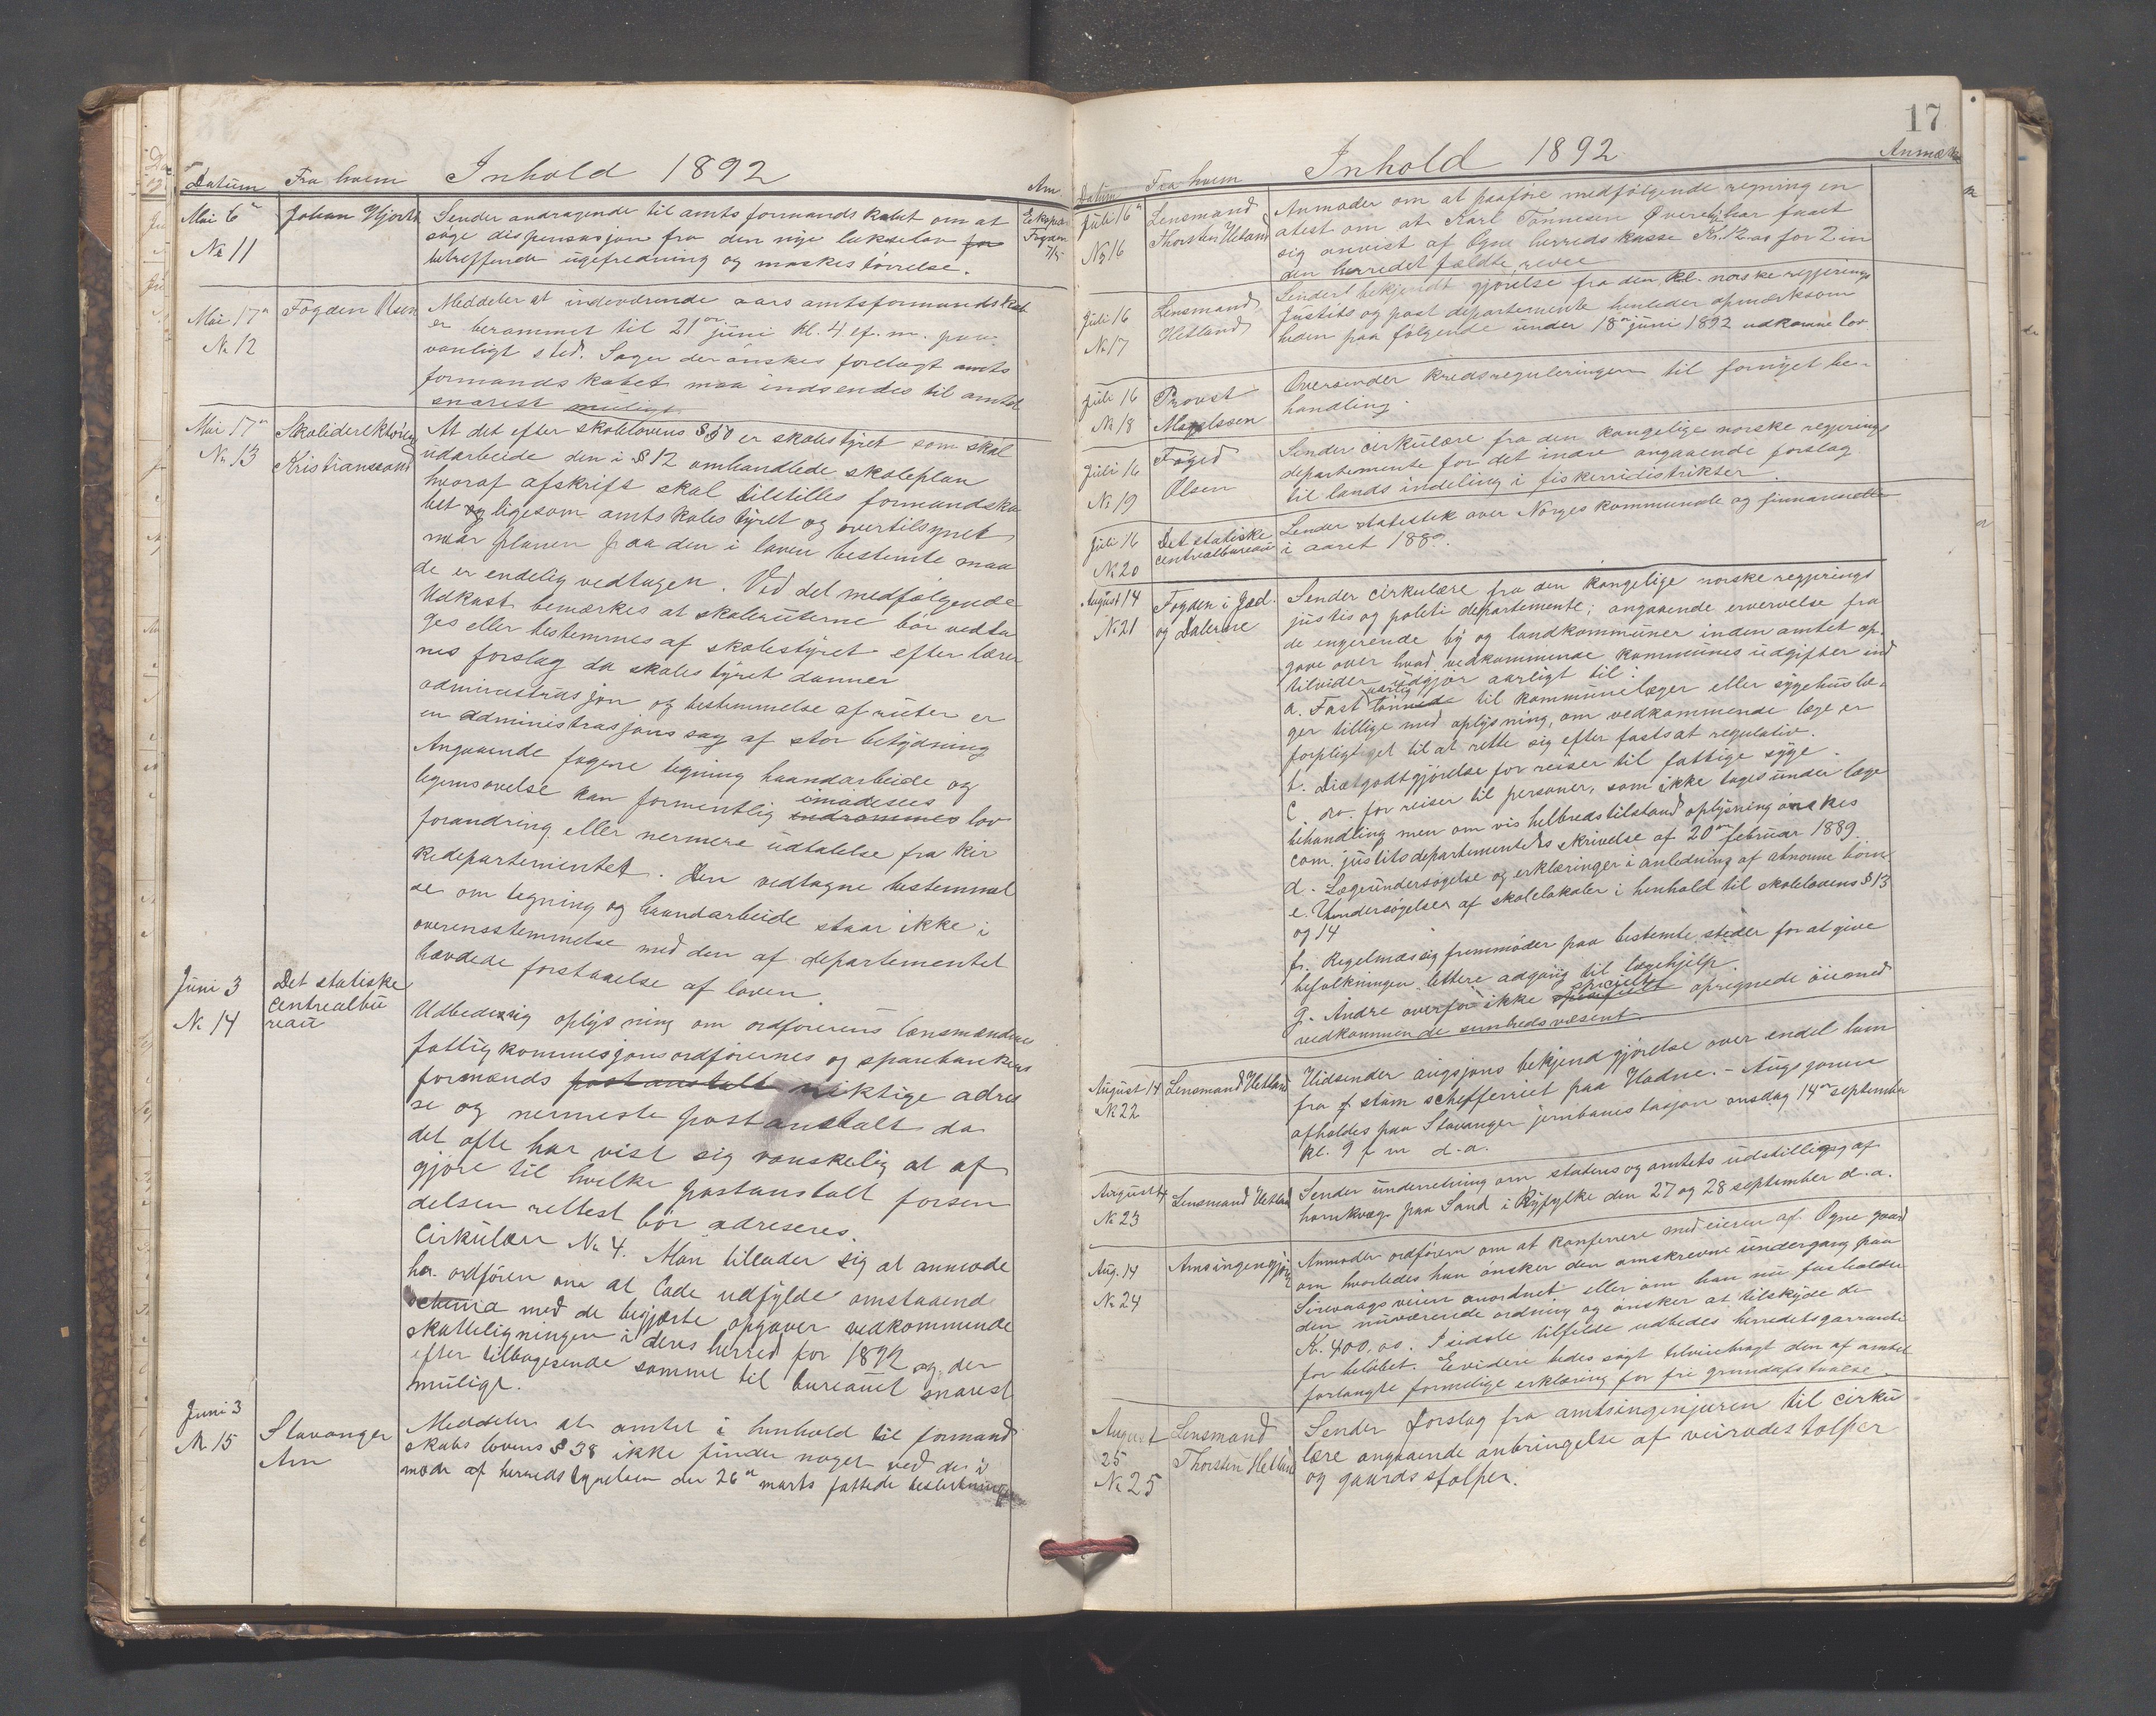 Datum Fra hvem Inhold 1892 Am
Mai 6te Johan Hjorth Sender andragende til amtsformandskabet om at Eksped
No 11 søge dispensasjon fra den nye lakselov Fogden
betreffende ugefredning og maskestørrelse. 7/5
Mai 17de Fogden Olsen Meddeler at indeværende aars amtsformandskab
No 12 er berammet til 21de juni kl. 4 ef. m. paa
vanligt sted. Sager der ønskes forelagt amts
formandskabet maa indsendes til amtet
snarest muligt
Mai 17de Skoledirektören At det efter skolelovens § 50 er skolestyret som skal
No 13 Kristianssand udarbeide den i § 12 omhandlede skoleplan
hvoraf afskrift skal tilstilles formandska
bet og ligesom amtskolestyret og overtilsynet
naar planen paa den i loven bestemte maa
de er endelig vedtagen. Ved det medfølgende
Udkast bemærkes at skoleruterne bør vedta
ges eller bestemmes af skolestyret efter lærer
nes forslag da skolestyret danner
administrasjon og bestemmelse af ruter er
en administrasjons sag af stor betydning
Angaaende fagene tegning haandarbeide og
legemsøvelse kan formentlig imødesees
indrømmes lov
forandring eller nermere udtalelse fra Kir
kedepartementet. Den vedtagne bestemmel
se om tegning og haandarbeide staar ikke i
overensstemmelse med den af departementet
hævdede forstaaelse af loven.
Juni 3 Det statiske Udbeder sig oplysning om ordførerens lænsmændenes
No 14 centrealbü fattigkommisjonsordførernes og sparebankens
reaü formænds postanstalt riktige adres
se og nermeste postanstalt da
det ofte har vist sig vanskelig at af
gjøre til hvilke postanstalt forsen
delsen rettest bør adreseres.
Cirkulær No 4. Man tillader sig at anmode
hr. ordføren om at lade udfylde omstaaende
schema med de begjærte opgaver vedkommende
skatteligningen i deres herred for 1892 og der
efter tilbagesende samme til bureauet snarest
muligt.
Juni 3 Stavanger Meddeler at amtet i henhold til formand
No 15 Am skabs lovens § 38 ikke finder noget ved de i
møde af herredstyrelsen den 26de marts fattede beslutninger
17
Datum Fra hvem Inhold 1892 Anmærk
Juli 16de Lensmand Anmoder om at paaføre medfølgende regning en
No 16 Thorsten Hetland atest om at Karl Tønnesen har faaet
sig anvist af Ogne herredskasse Kr. 12.00 for 2 in
den herredet fældte reve
Juli 16 Lensmand Sendt bekjendtgjørelse fra den kl. norske regjerings
No 17 Hetland Justits og post departemente henleder opmærksom
heden paa følgende under 18de juni 1892 udkomne lov
Juli 16 Provst Oversender kredsreguleringen til fornyet be-
No 18 Magelssen handling.
Juli 16 Foged Sender cirkulære fra den kongelige norske regjerings
No 19 Olsen departemente for det indre angaaende forslag
til lands indeling i fiskeridistrikter
Juli 16 Det statiske Sender statestik over Norges kommunale og finnanser
No 20 centrealbureaü i aaret 1889.
August 14 Fogden i Jæd. Sender cirkulære fra den kongelige norske regjerings
No 21 og Dalerne justis og politi departemente; angaaende ervervelse fra
de engerende by og landkommuner inden amtet op-
gave over hvad vedkommende kommunes udgifter ind
tilvider udgjør aarligt til:
a. Fast aarlig lønnede til kommunelæger eller sygehuslæ-
ger tillige med oplysning, om vedkommende læge er
forpligtget til at rette sig efter fastsat regulativ.
b. Diætgodtgjørelse for reiser til fattige syge.
c. do. for reiser til personer, som ikke tages under læge
behandling men om vis helbredstilstand oplysning ønskes
com. justitsdepartementets skrivelse af 20de februar 1889.
d. Lægeundersøgelse og erklæringer i anledning af abnorme börn
e. Undersøgelser af skolelokaler i henhold til skolelovens § 13
og 14
f. Regelmæssig fremmøder paa bestemte steder for at give
befolkningen lettere adgang til lægehjelp.
g. Andre overfor ikke specielt opregnede øiemed
vedkommende sundhedsvæsent.
August 14 Lensmand Hetland Udsender augsjons bekjendgjørelse over endel lam
No 22 fra stam schefferiet paa Hodne. - Augsjonen
afholdes paa Stavanger jernbanistasjon onsdag 14de september
kl. 9 f m d.a.
August 14 Lensmand Hetland Sender underretning om statens og amtets udstilling af
No 23 hornkvæg paa Sand i Ryfylke den 27 og 28 september d.a.
Aug. 14 Amsingengjør Anmoder ordføren om at konferere med eieren af Ogne gaard
No 24 om hvorledes han ønsker den omskrevne undergang paa
Sirevaagsveien anordnet eller om han nu fasholder
den nuværende ordning og ønsker at tilskyde de
Kr. 400,00. I sidste tilfælde udbedes herredets garrante
for beløbet. Evidere bedes søgt tilveiebragt den af amtet
forlangte formelige erklæring for fri grundafstaaelse.
August Lensmand Sender forslag fra amtsingenjøren til cirku
25 Thorsten Hetland lære angaaende anbringelse af veirodestolper
No 25 og gaardsstolper.